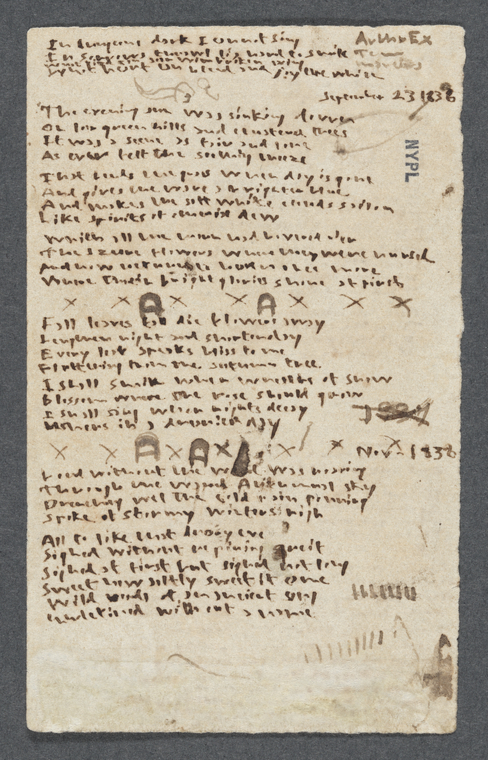 In dungeons dark I cannot sing
In sorrow's thrall 'tis hard to smile
What bird can soar with broken wing
What heart can bleed and joy the while
Arthr Ex
To
September 23 1838
The evening sun was sinking down
On low green hills and clustered trees
It was a scene as fair and lone
As ever felt the soothing breeze
That bends the grass when day is gone
And gives the wave a brighter blue
And makes the soft white clouds sail on
Like spirits of ethereal dew
Which all the morn had hovered o'er
The azure flowers where they were nursed
And now return to Heaven once more
Where their bright glories shone at first
NYPL
× × A × × A × × ×
Fall leaves fall die flowers away
Lengthen night and shorten day
Every leaf speaks bliss to me
Fluttering from the autumn tree
I shall smile when wreaths of snow
Blossom where the rose should grow
I shall sing when night's decay
Ushers in a drearier day
× × A × A × × × × ×
Nov 1838
Loud without the wind was roaring
Through the waned Autumnal sky
Drenching wet the cold rain pouring
Spoke of stormy winters nigh
All to like that dreary eve
Sighed without repining grief
Sighed at first but sighed not long
Sweet How softly sweet it came
Wild words of an ancient song
Undefined without a name